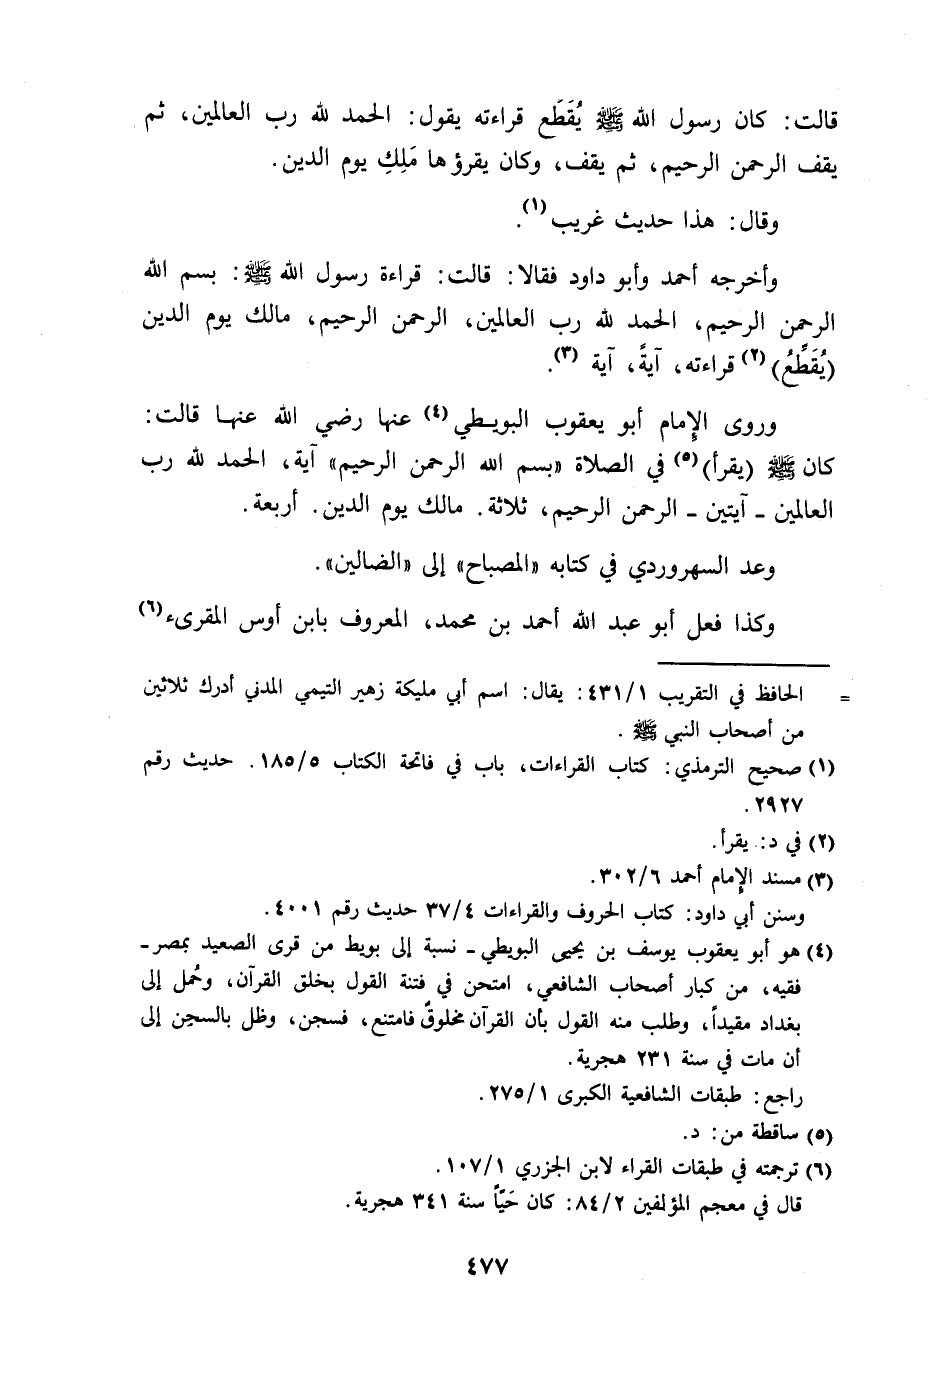 قالت: كان رسول الله ﷺ يُقَطَع قراءته يقول: الحمد لله رب العالمين، ثم
يقف الرحمن الرحيم، ثم يقف، وكان يقرؤها مَلِكِ يوم الدين.
وقال: هذا حديث غريب(١).
وأخرجه أحمد وأبو داود فقالا: قالت: قراءة رسول الله ﷺ: بسم الله
الرحمن الرحيم، الحمد لله رب العالمين، الرحمن الرحيم، مالك يوم الدين
(يُقَطِّعُ)(٢) قراءته، آيةً، آية (٣).
وروى الإمام أبو يعقوب البويطي(٤) عنها رضي الله عنها قالت:
كان ﷺ (يقرأ)(٥) في الصلاة «بسم الله الرحمن الرحيم» آية، الحمد لله رب
العالمين ـ آيتين ـ الرحمن الرحيم، ثلاثة. مالك يوم الدين. أربعة.
وعد السهروردي في كتابه «المصباح» إلى «الضالين».
وكذا فعل أبو عبد الله أحمد بن محمد، المعروف بابن أوس المقرىء(٦)
= الحافظ في التقريب ٤٣١/١: يقال: اسم أبي مليكة زهير التيمي المدني أدرك ثلاثين
من أصحاب النبي ﷺ .
(١) صحيح الترمذي: كتاب القراءات، باب في فاتحة الكتاب ١٨٥/٥. حديث رقم
٢٩٢٧.
(٢) في د: يقرأ.
(٣) مسند الإمام أحمد ٣٠٢/٦.
وسنن أبي داود: كتاب الحروف والقراءات ٣٧/٤ حديث رقم ٤٠٠١.
(٤) هو أبو يعقوب يوسف بن يحيى البويطي ـ نسبة إلى بويط من قرى الصعيد بمصر ـ
فقيه، من كبار أصحاب الشافعي، امتحن في فتنة القول بخلق القرآن، وحُمل إلى
بغداد مقيداً، وطلب منه القول بأن القرآن مخلوقٌ فامتنع، فسجن، وظل بالسجن إلى
أن مات في سنة ٢٣١ هجرية.
راجع: طبقات الشافعية الكبرى ٢٧٥/١.
(٥) ساقطة من: د.
(٦) ترجمته في طبقات القراء لابن الجزري ١٠٧/١.
قال في معجم المؤلفين ٨٤/٢: كان حَيّاً سنة ٣٤١ هجرية.
٤٧٧